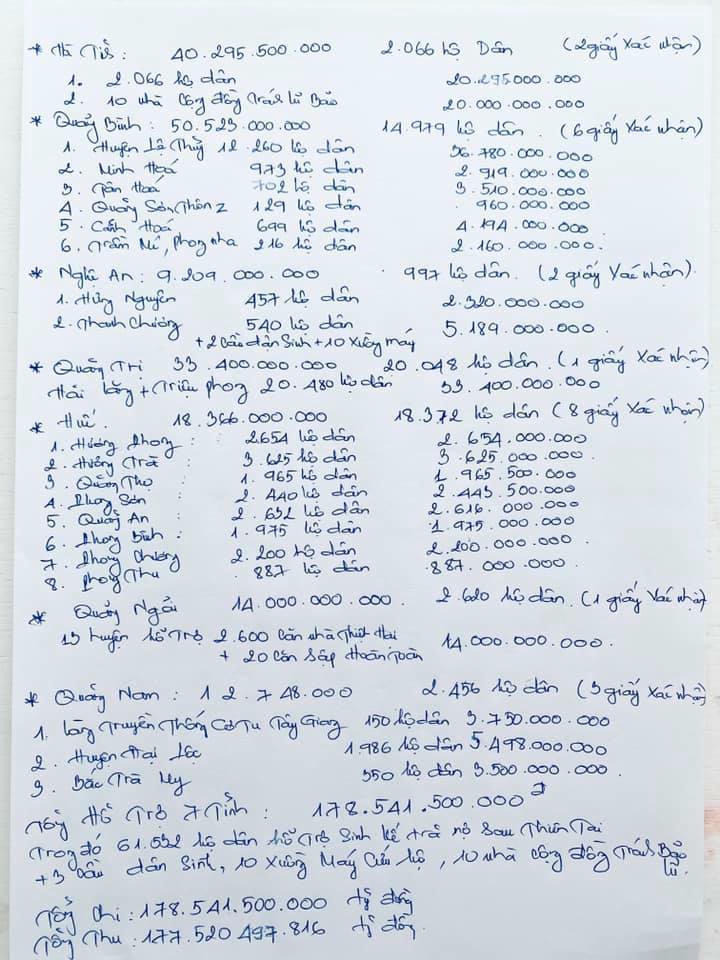 * Hà Tĩnh : 40.295.500.000 2.066 hộ Dân (2 giấy Xác nhận)
1. 2.066 hộ dân 20.295.000.000
2. 10 nhà Cộng đồng Tránh lũ Bão 20.000.000.000
* Quảng Bình : 50.523.000.000 14.979 hộ dân . (6 giấy Xác nhận)
1. Huyện Lệ Thủy 12.260 hộ dân 36.780.000.000
2. Minh Hoá 973 hộ dân 2.919.000.000
3. Tân Hoá 702 hộ dân 3.510.000.000
4. Quảng Sơn, Thôn 2 129 hộ dân 960.000.000
5. Cảnh Hoá 699 hộ dân 4.194.000.000
6. Trầm Mé, Phong nha 216 hộ dân 2.160.000.000.
* Nghệ An : 9.209.000.000 997 hộ dân. (2 giấy Xác nhận).
1. Hưng Nguyên 457 hộ dân 2.320.000.000
2. Thanh Chương 540 hộ dân 5.189.000.000.
+ 2 Cầu dân Sinh + 10 Xuồng máy
* Quảng Trị 33.400.000.000 20.048 hộ dân. (1 giấy Xác nhận)
Hải Lăng + Triệu Phong 20.480 hộ dân 33.400.000.000
* Huế . 18.366.000.000 18.372 hộ dân (8 giấy Xác nhận)
1. Hương Phong : 2654 hộ dân 2.654.000.000
2. Hương Trà : 3.625 hộ dân 3.625.000.000
3. Quảng Thọ : 1.965 hộ dân 1.965.500.000
4. Phong Sơn : 2.440 hộ dân 2.443.500.000
5. Quảng An : 2.632 hộ dân 2.616.000.000
6. Phong Bình : 1.975 hộ dân 1.975.000.000
7. Phong Chương 2.200 hộ dân 2.200.000.000.
8. Phong Thu 887 hộ dân 887.000.000.
* Quảng Ngãi 14.000.000.000. 2.620 hộ dân. (1 giấy Xác nhận)
13 huyện hỗ Trợ 2.600 Căn nhà Thiệt Hại 14.000.000.000.
+ 20 Căn Sập Hoàn Toàn
* Quảng Nam : 12.748.000 2.456 hộ dân (3 giấy Xác nhận)
1. Làng Truyền Thống Cơ Tu Tây Giang 150 hộ dân 3.750.000.000
2. Huyện Đại Lộc 1.986 hộ dân 5.498.000.000
3. Bắc Trà My 350 hộ dân 3.500.000.000.
Tổng Hỗ Trợ 7 Tỉnh : 178.541.500.000 đ
Trong đó 61.532 hộ dân hỗ Trợ Sinh Kế trả nợ Sau Thiên Tai
+ 3 Cầu dân Sinh, 10 Xuồng Máy Cứu hộ, 10 nhà Cộng đồng Tránh Bão lũ.
Tổng Chi : 178.541.500.000 tỷ đồng
Tổng Thu : 177.520.497.816 tỷ đồng.